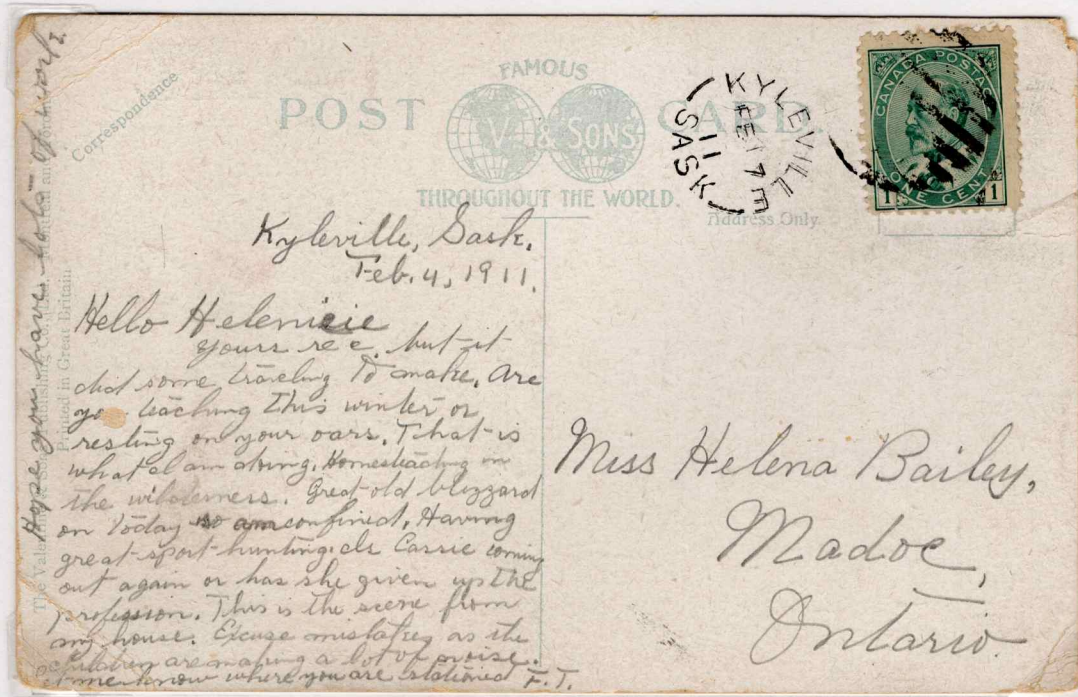 Correspondence
FAMOUS
POST CARD.
V. & SONS
THROUGHOUT THE WORLD.
Address Only.
KYLEVILL
FE 4
11
SASK
CANADA POSTAG
ONE CENT
1 1
Kyleville, Sask.
Feb. 4, 1911.
Hello Helen
Yours rec. but it
did some traveling to make. Are
you teaching this winter or
resting on your oars. That is
what I am doing. Homesteading in
the wilderness. Great old blizzard
on today so am confined. Having
great sport hunting. Is Carrie coming
out again or has she given up the
profession. This is the scene from
my house. Excuse mistakes as the
children are making a lot of noise.
me know where you are stationed F.T.
Hope you have lots of
Miss Helena Bailey,
Madoc,
Ontario.
Printed in Great Britain